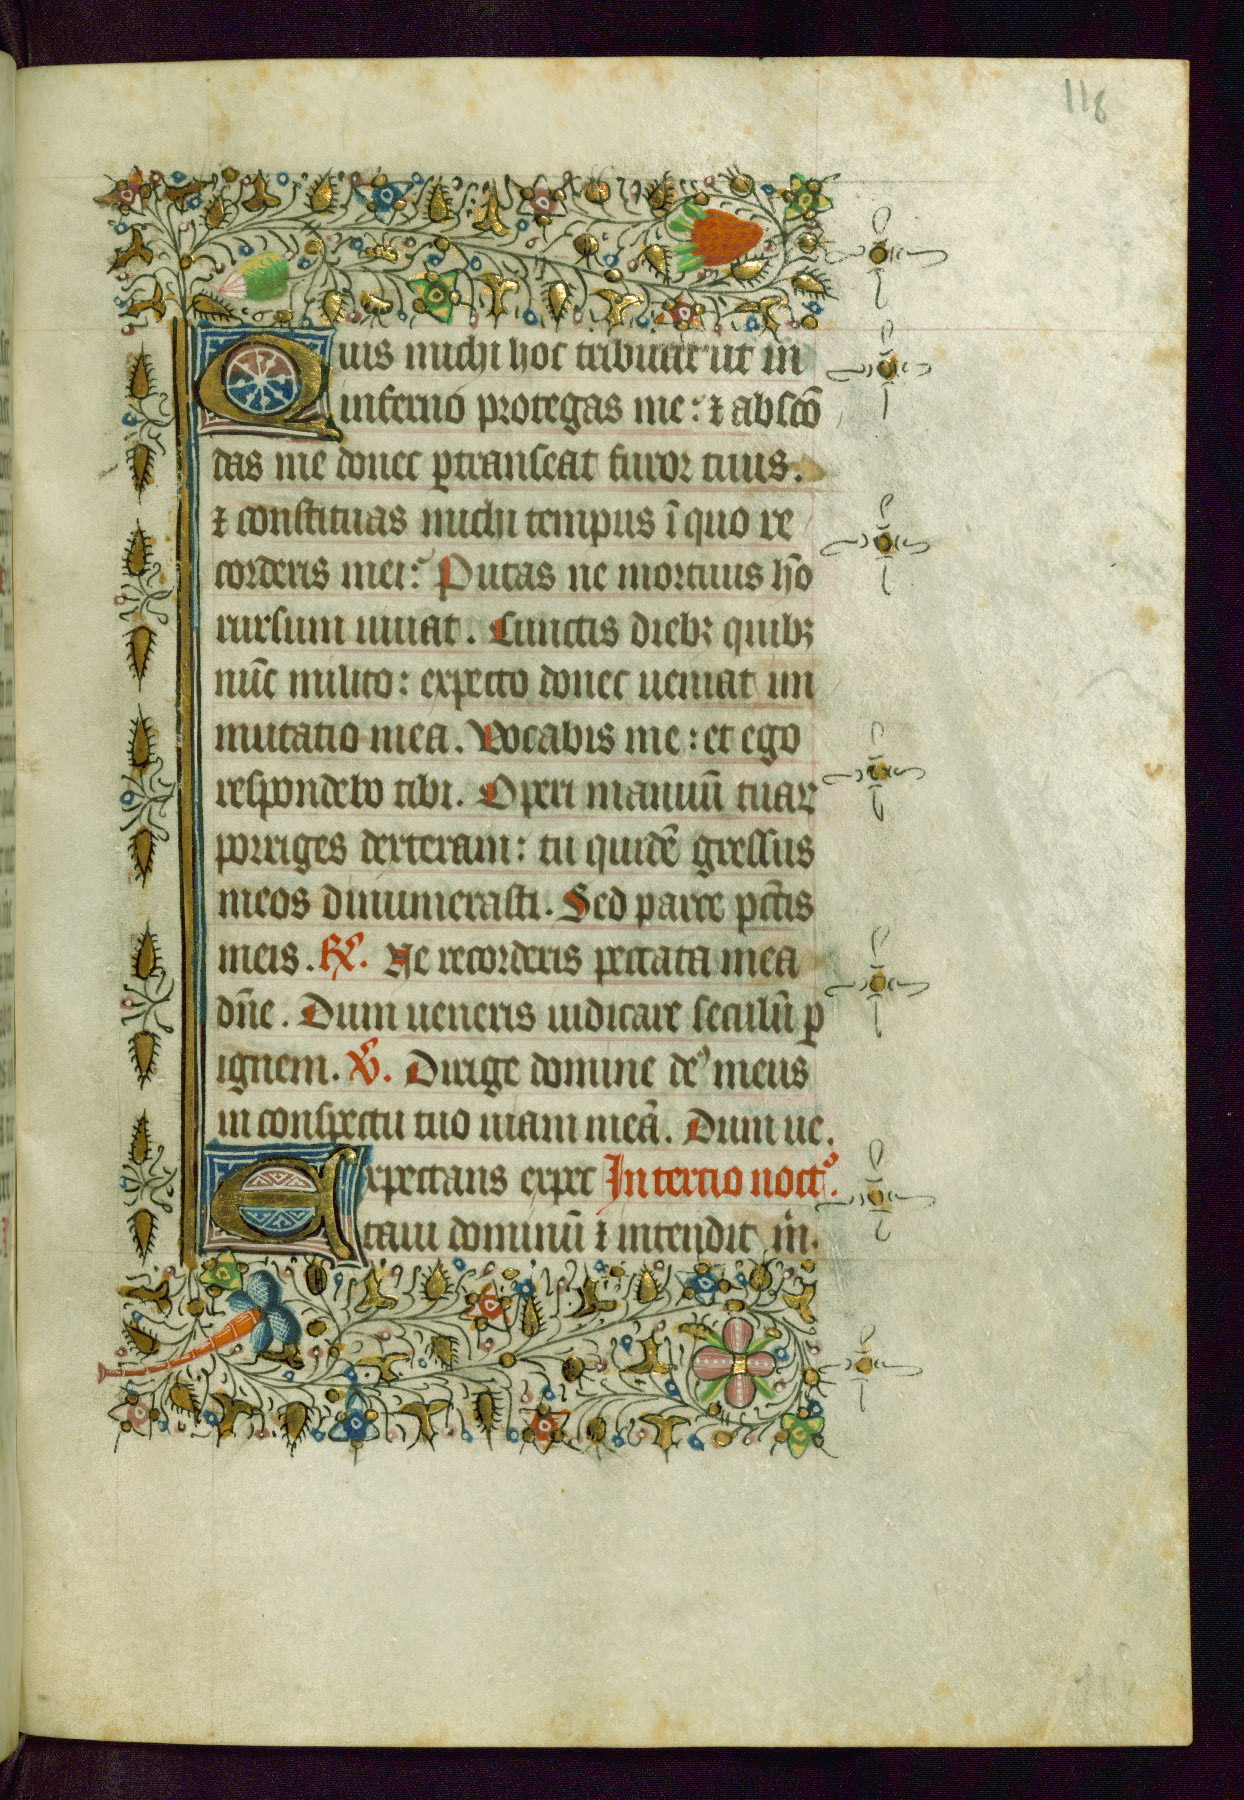 118
Quis michi hoc tribuat ut in
inferno protegas me: ⁊ absco᷉
das me donec ꝑtranseat furor tuus.
⁊ constituas michi tempus ī quo re
corderis mei: Putas ne mortuus hō
rursum uiuat. Cunctis diebꝫ quibꝫ
nūc milito: expecto donec ueniat im
mutatio mea. Vocabis me: et ego
respondebo tibi. Operi manuū tuaꝝ
porriges dexteram: tu quidē gressus
meos dinumerasti. Sed parce pctis̄
meis. ℟. Ne recorderis peccata mea
dn̄e. Dum ueneris iudicare seculū ꝑ
ignem. ℣. Dirige domine deꝰ meus
in conspectu tuo uiam meā. Dum ue.
Expectans expec In tercio noctꝰ.
taui dominū ⁊ intendit m̅.